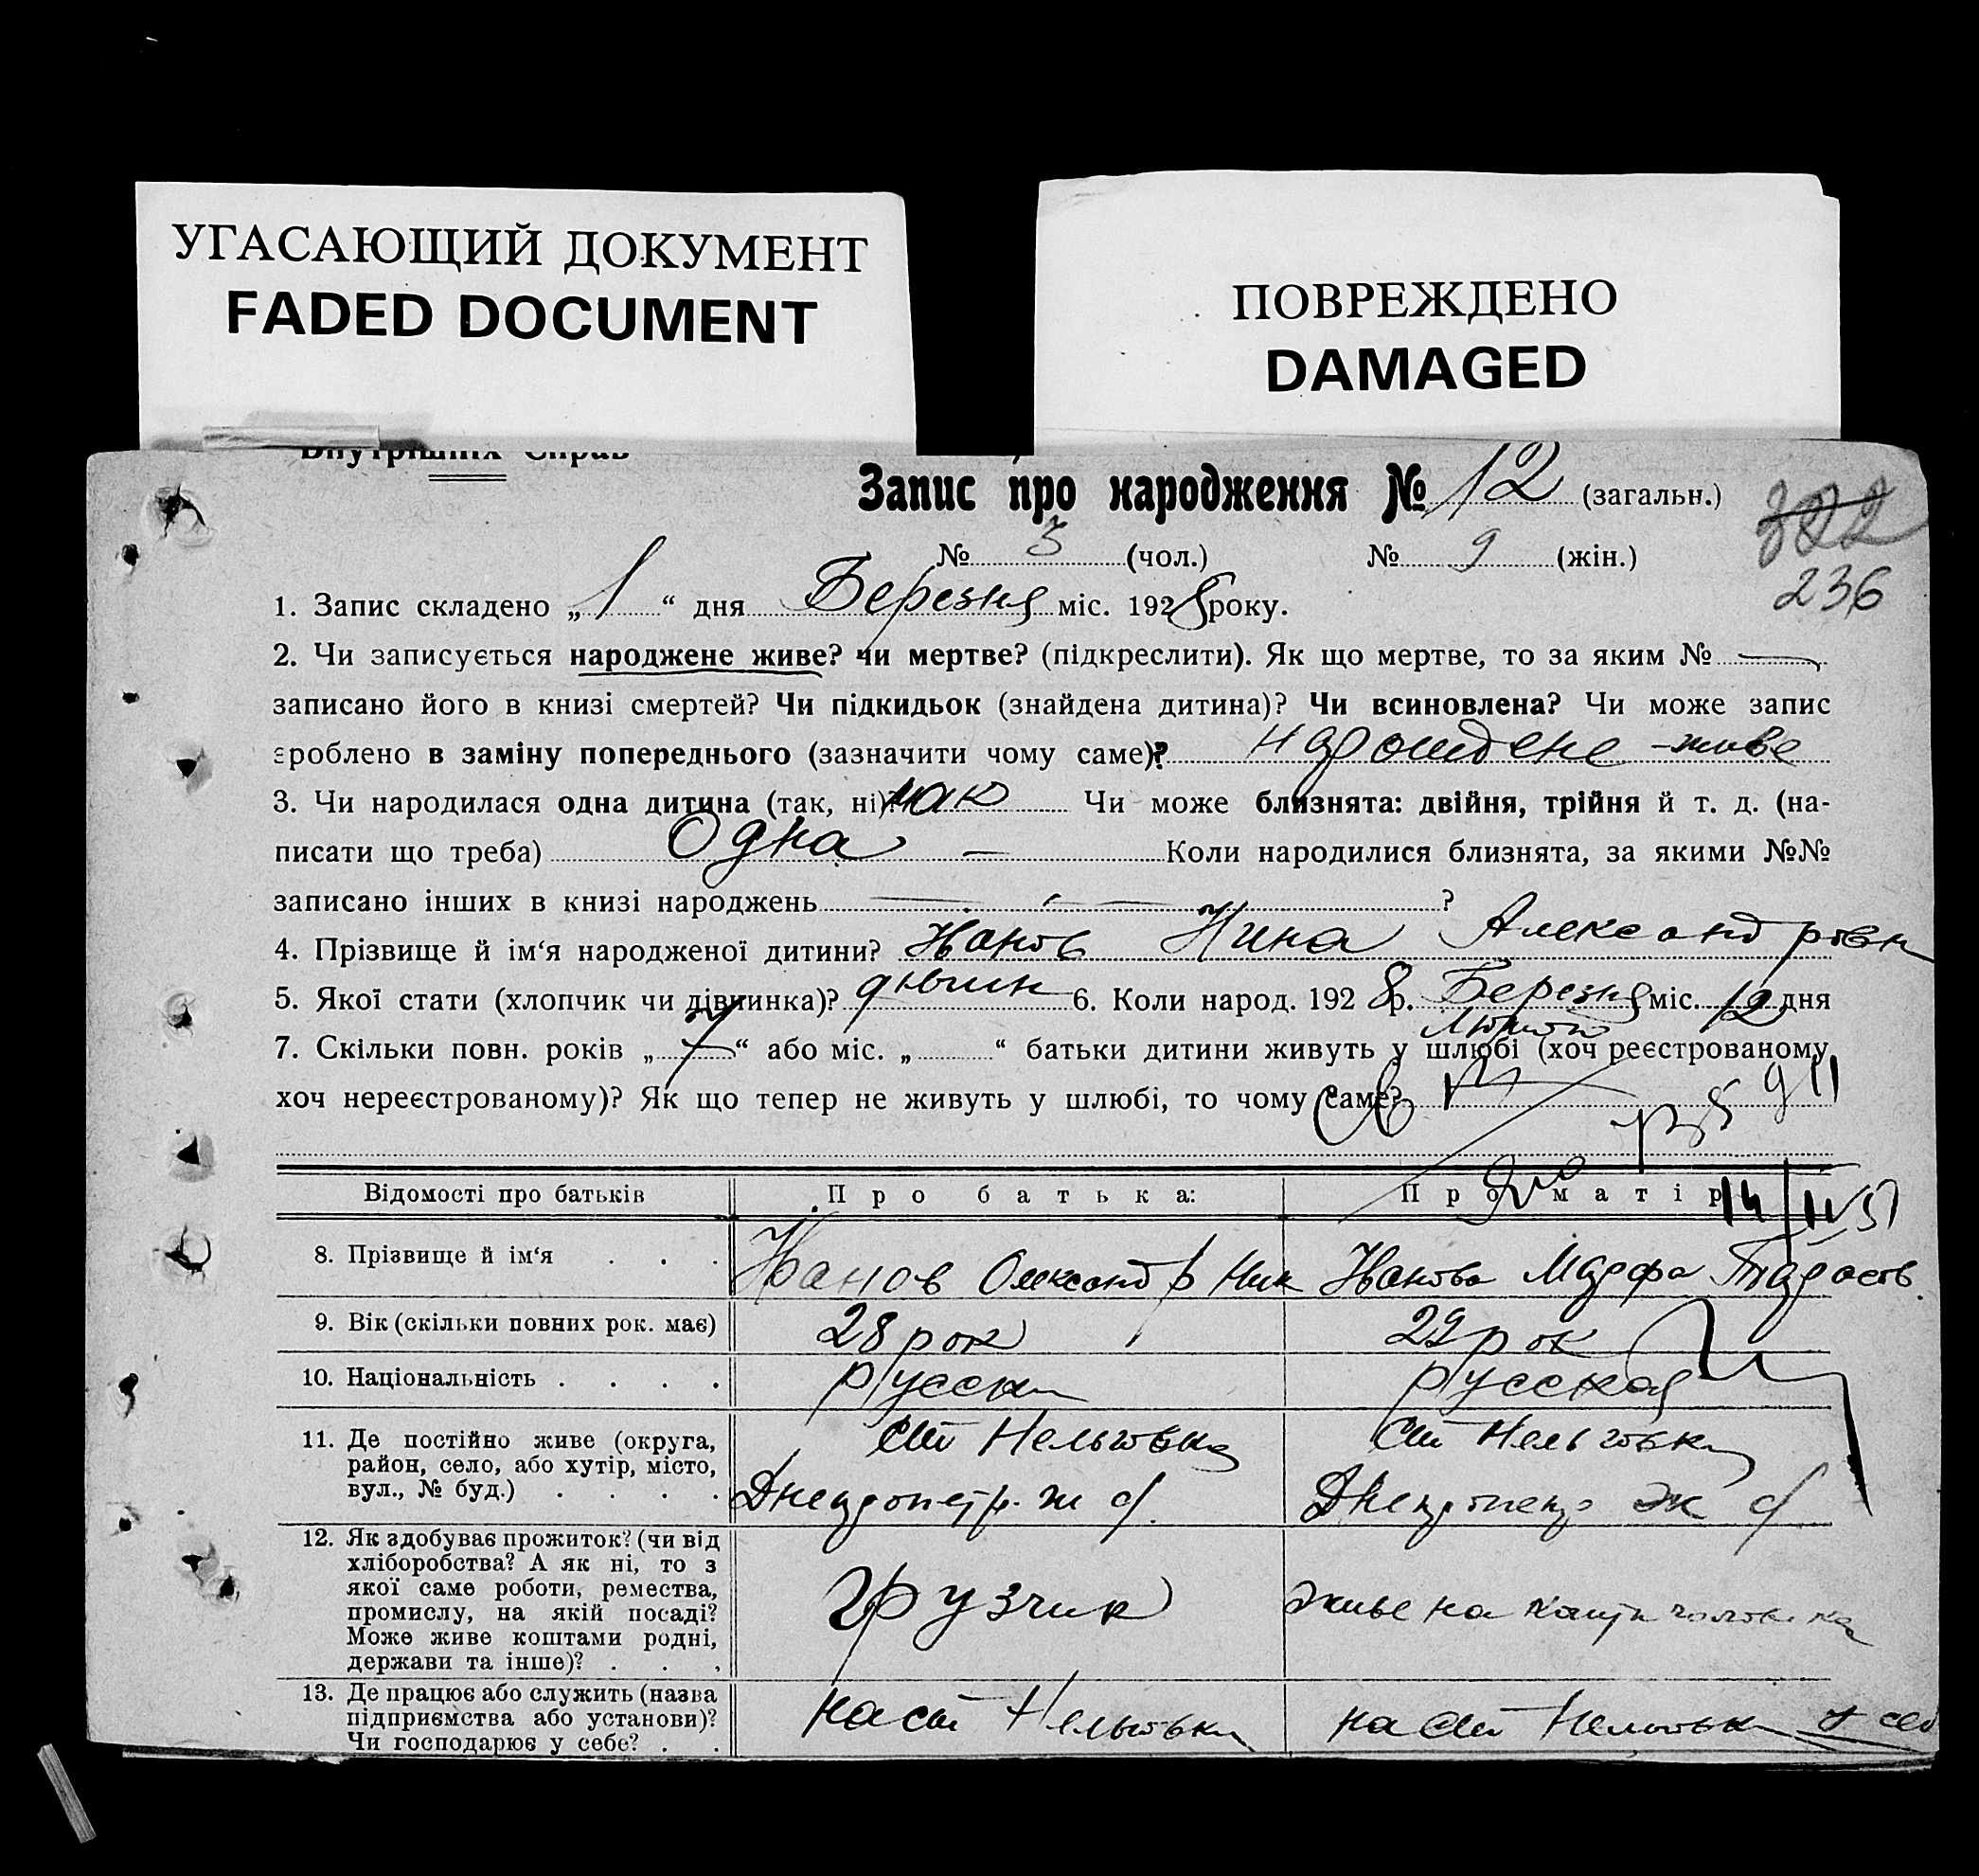 УГАСАЮЩИЙ ДОКУМЕНТ
FADED DOCUMENT
ПОВРЕЖДЕНО
DAMAGED
Внутрішніх Справ
Запис про народження № 12 (загальн.)
322
№ 3 (чол.) № 9 (жін.)
236
1. Запис складено „ 1 “ дня Березня міс. 1928 року.
2. Чи записується народжене живе? чи мертве? (підкреслити). Як що мертве, то за яким №
записано його в книзі смертей? Чи підкидьок (знайдена дитина)? Чи всиновлена? Чи може запис
зроблено в заміну попереднього (зазначити чому саме)? народжене - живе
3. Чи народилася одна дитина (так, ні)? так Чи може близнята: двійня, трійня й т. д. (на-
писати що треба) Одна — Коли народилися близнята, за якими №№
записано інших в книзі народжень ?
4. Прізвище й ім‘я народженої дитини? Иванов Нина Александровн
5. Якої стати (хлопчик чи дівчинка)? 6. Коли народ. 1928 р. Березня міс. 12 дня
Лютого
7. Скільки повн. років „ 7 “ або міс. „ “ батьки дитини живуть у шлюбі (хоч реєстрованому,
хоч нереєстрованому)? Як що тепер не живуть у шлюбі, то чому саме?
Відомості про батьків Про батька: Про матір
8. Прізвище й ім‘я . . . Иванов Олександр Ник Иванова Марфа Тарасов.
9. Вік (скільки повних рок. має) 28 рок 22 рок
10. Національність . . . . русски русская
11. Де постійно живе (округа,
район, село, або хутір, місто,
вул., № буд.) . . . .
ст Нельговка ст Нельговка
Днепропетр. ж д. Днепропетр ж д
12. Як здобуває прожиток? (чи від
хліборобства? А як ні, то з
якої саме роботи, ремества,
промислу, на якій посаді?
Може живе коштами родні,
держави та інше)? . . .
Грузчик живе на кошти чоловіка
13. Де працює або служить (назва
підприємства або установи)?
Чи господарює у себе? . .
на ст Нельговки на ст Нельговки у себ